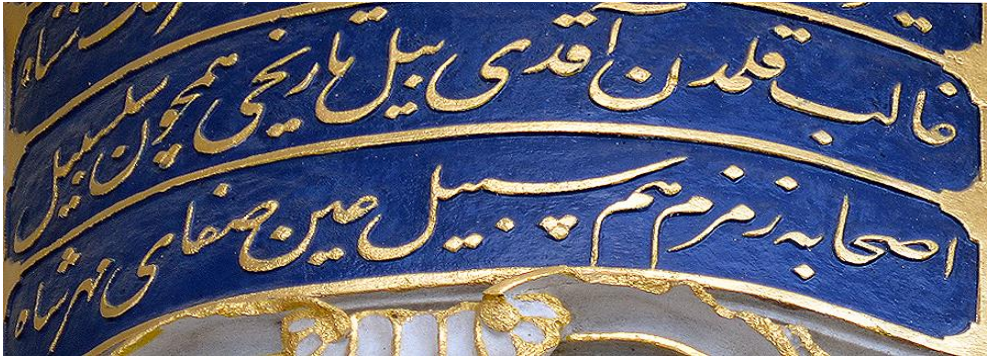 غالب قلمدن آقدی بیل تاریخی همچون سلسبیل
اصحابه زمزم هم سبیل عین صفای نهر شاه